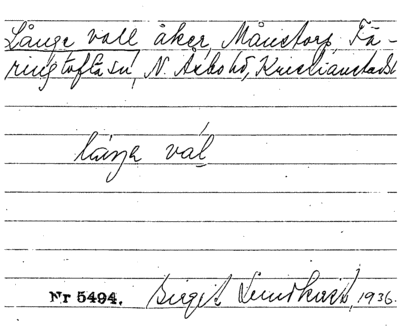 Långe voll åker, Månstorp, Fä-
ringtofta sn, N. Åsbo hd, Kristianstads l
långa vål
Nr 5494. Birgit Lundkvist, 1936.